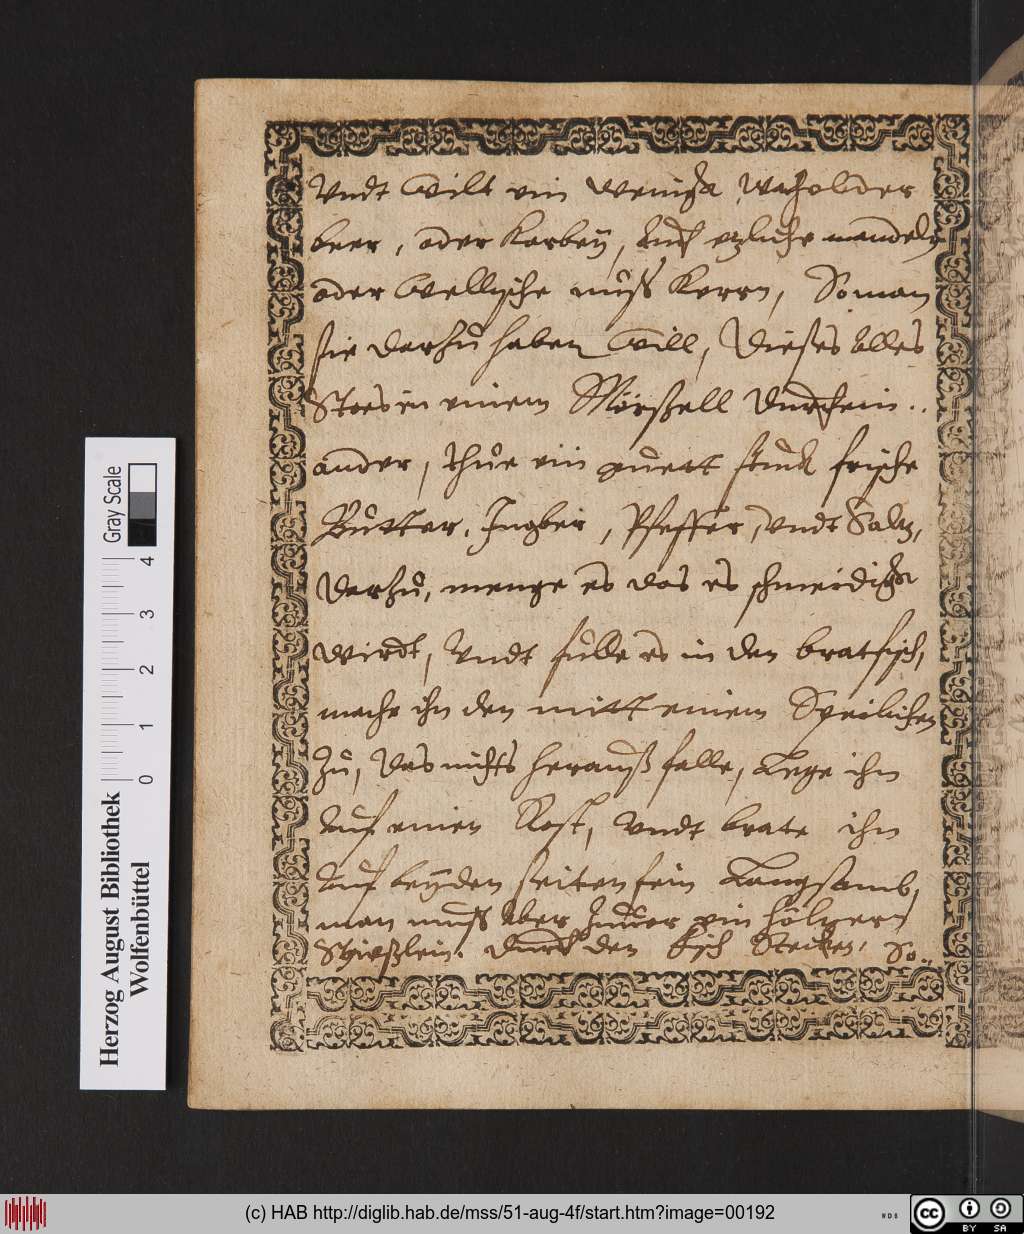 Vndt wilt ein wenigk wacholder
beer, oder Karbey, auch etzliche mandeln
oder Wellische nuß Kern, So man
sie darzu haben will, Dieses alles
Stos in einem Mörßell Durchein..
ander, thue ein guett stuck frische
Butter, Ingber, Pfeffer, Vndt Saltz,
Darzu, menge es das es schmeidigk
wirdt, Vndt fulle es in den bratfisch,
mache ihn den mitt einem Speilichen
Zu, Das nichts herauß falle, Lege ihn
auf einen Rost, Vndt brate ihn
auf beyden seiten fein Langsamb,
man muß aber zuuor ein höltzern
Spießlein. Durch den fisch Stecken, So..
Herzog August Bibliothek
Wolfenbüttel
0 1 2 3 4
Gray Scale
(c) HAB http://diglib.hab.de/mss/51-aug-4f/start.htm?image=00192
WDB
cc BY SA